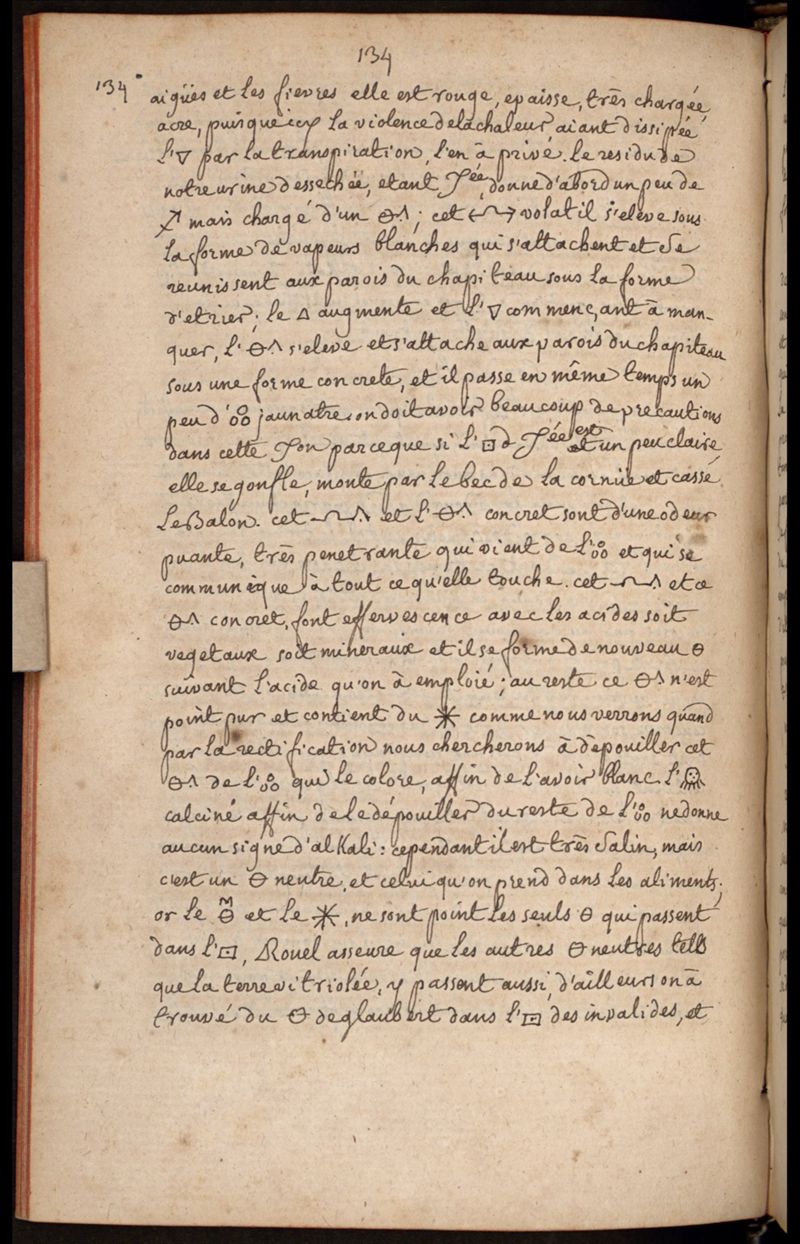 134
134
aigües et les fievres elle est rouge, epaisse, très chargée
acre, puisque icy la violence de la chaleur aiant dissipée
l'🜄 par la transpiration, l'en à privé. le residu de
notre urine dessechée, etant ée, donne d'abord un peu de
mais chargé d'un 🜔^; cet volatil s'eleve sous
la forme de vapeurs blanches qui s'attachent et se
reunissent aux parois du chapiteau sous la forme
d'etrier; le 🜂 augmente et l'🜄 commençant à man-
quer, l'🜔^ s'eleve et s'attache aux parois du chapiteau
sous une forme concrete, et il passe en même temps un
peu d'🝆 jaunatre. on doit avoir beaucoup de precautions
dans cette on parceque si l'🝕 d ée est un peu claire
elle se gonfle, monte par le bec de la cornüe et casse
le Balon. cet et l'🜔^ concret sont d'une odeur
puante, très penetrante qui vient de l'🝆 et qui se
communique à tout ce qu'elle touche. cet et ce
🜔^ concret, font effervescence avec les acides soit
vegetaux soit mineraux et il se forme de nouveau 🜔
suivant l'acide qu'on à emploié; au reste ce 🜔^ n'est
point pur et contient du 🞶 comme nous verrons quand
par la rectification nous chercherons à depouiller cet
🜔^ de l'🝆 qui le colore, affin de l'avoir blanc. l'
calciné affin de le dépouiller du reste de l'🝆 ne donne
aucun signe d'alKali: cependant il est très salin, mais
c'est un 🜔 neutre, et celui qu'on prend dans les aliments,
or le 🜔 et le 🞶, ne sont point les seuls 🜔 qui passent
dans l'🝕, Rouel asseure que les autres 🜔 neutres tels
que la terre vitriolée, y passent aussi, d'ailleurs on à
trouvé du 🜔 de glaubert dans l'🝕 des invalides, et